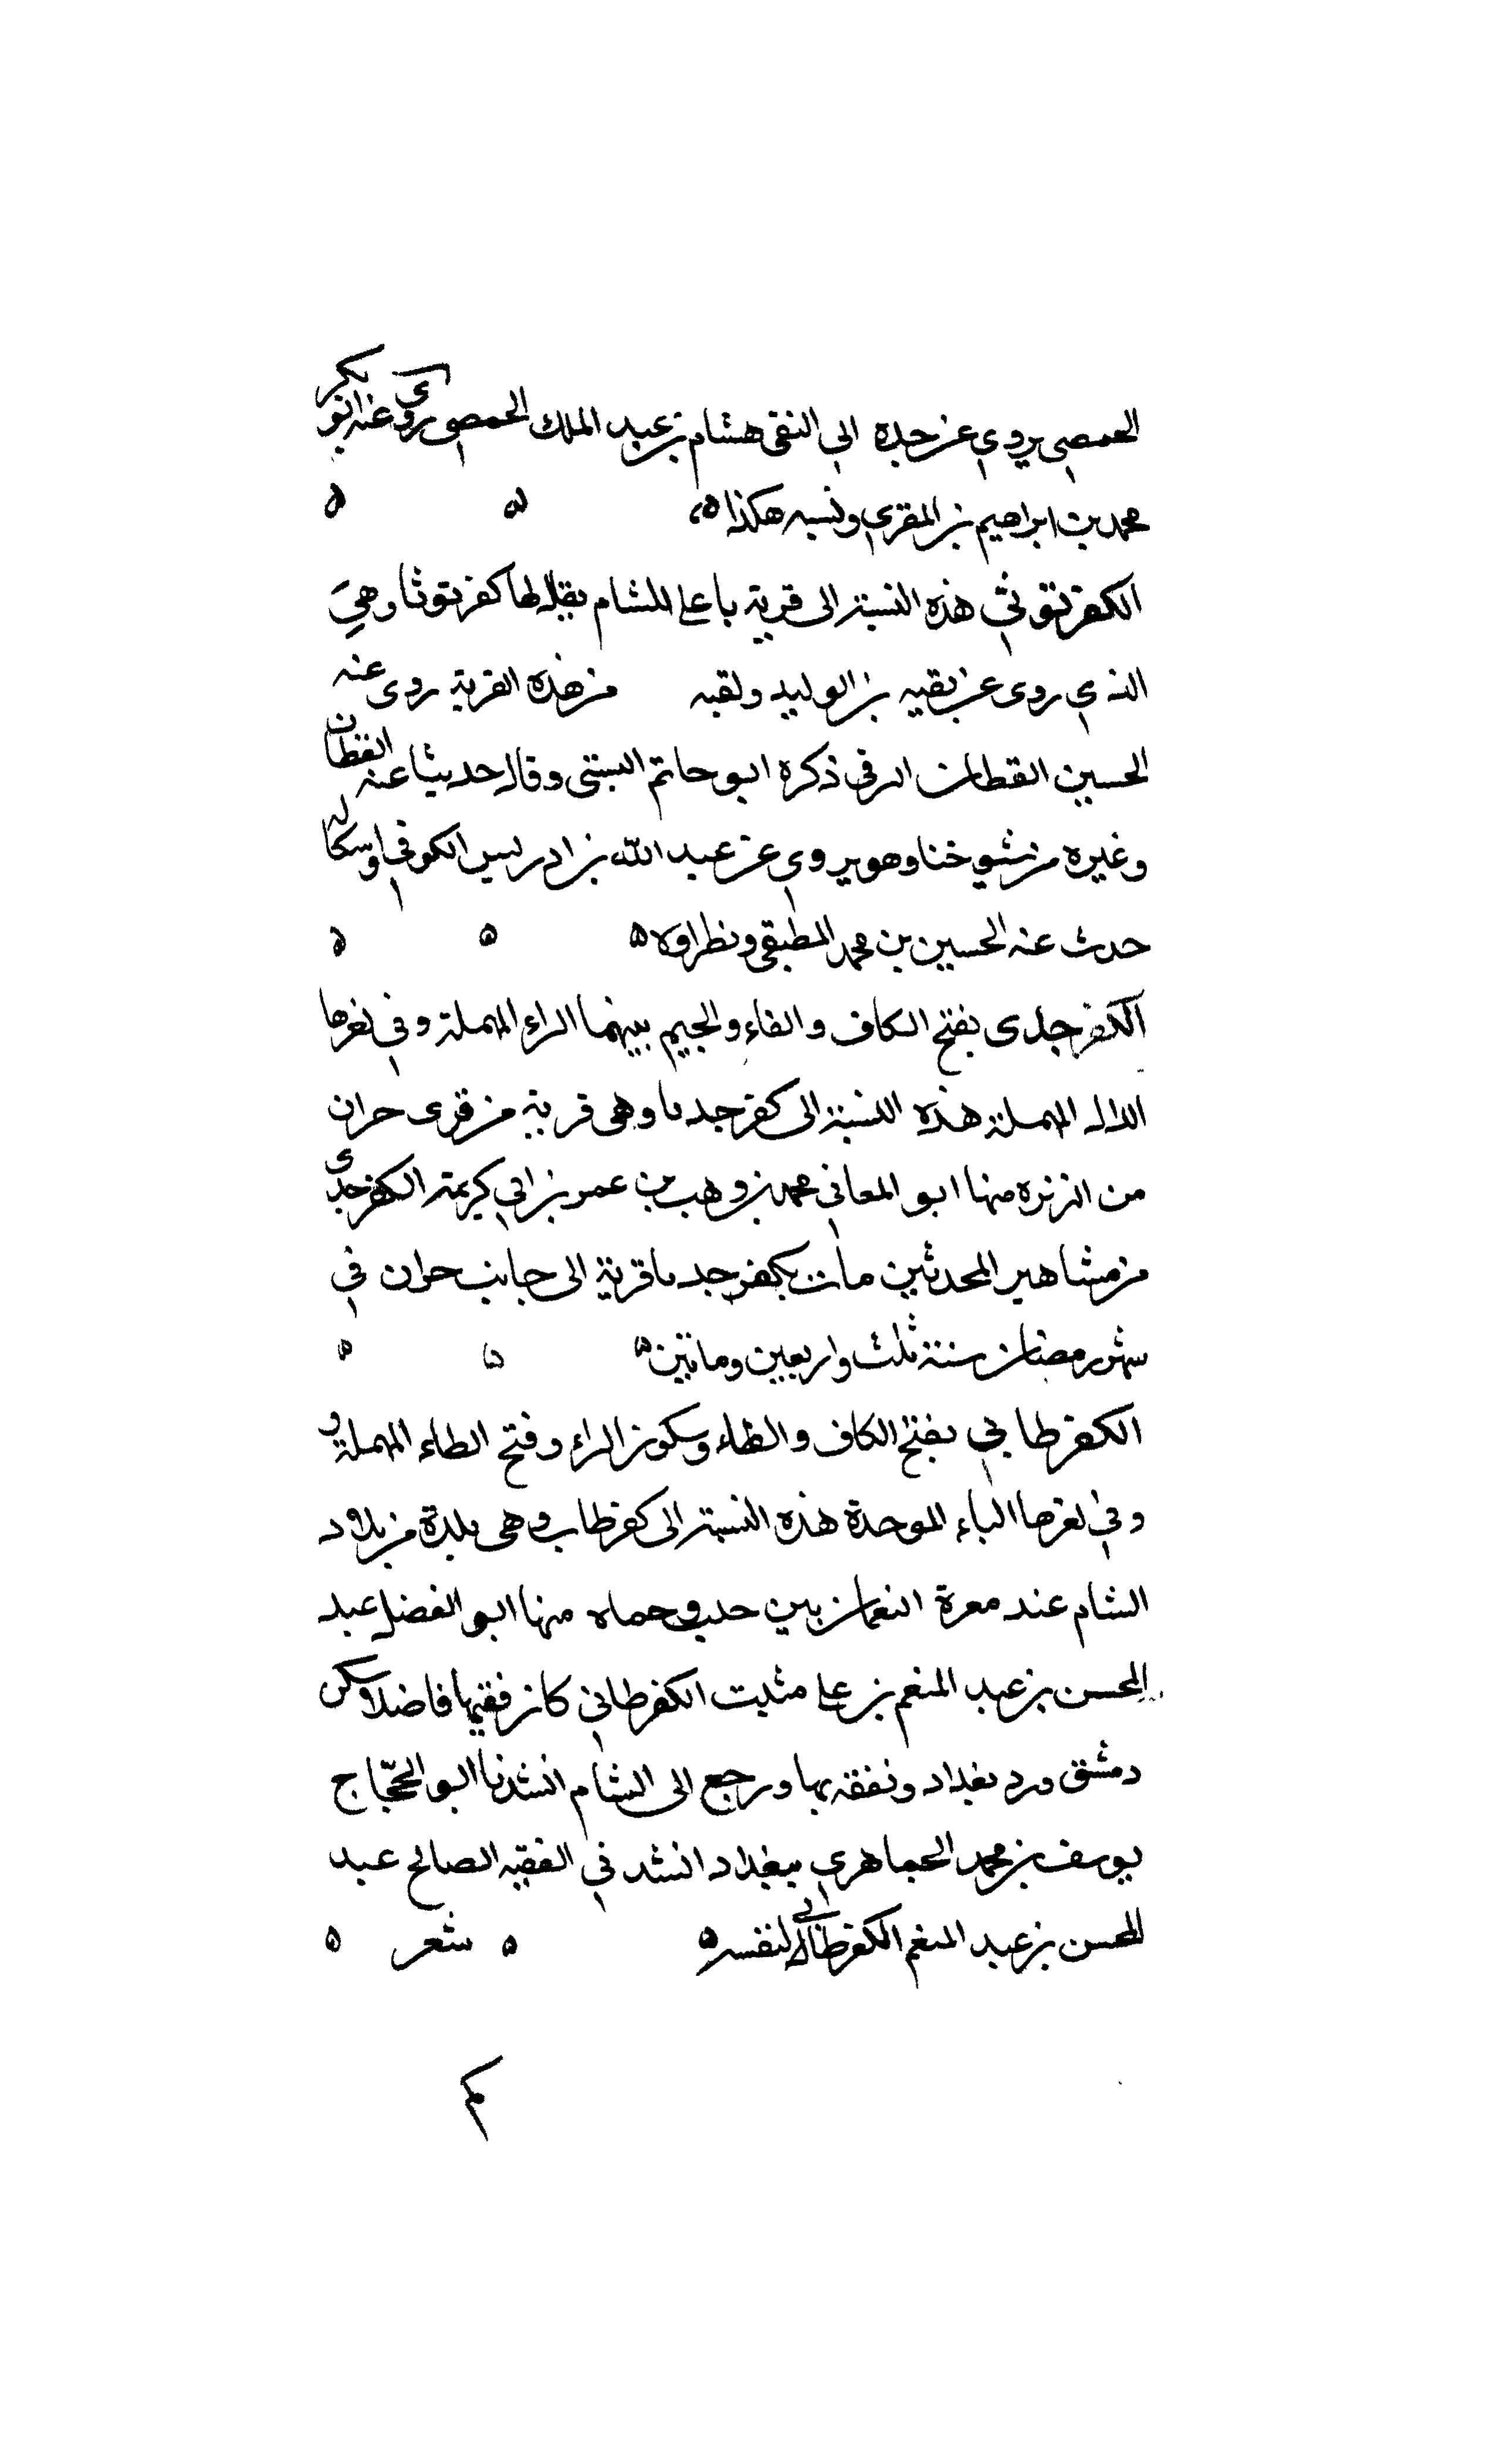 الحمصي يروي عن جده ابي التقى هشام بن عبد الملك الحمصي روى عنه ابو بكر
محمد بن ابراهيم بن المقرى ونسبه هكذا ٥
الكفرتوثي هذه النسبة الى قرية باعلى الشام يقال لها كفرتوثا وهي
الذي روى عن بقيه بن الوليد ولقبه من هذه القرية روى عنه
الحسين القطان الرقي ذكره ابو حاتم البستي وقال حديثا عنه القطان
وغيره من شيوخنا وهو يروي عن عبد الله بن ادريس الكوفي
حدث عنه الحسين بن محمد المطبقي ونظراوه ٥
الكفرجدى بفتح الكاف والفاء والجيم بينهما الراء المهملة وفي اخرها
الدال المهملة هذه النسبة الى كفرجديا وهي قرية من قرى حران
من منها ابو المعافي محمد بن وهب بن عمر بن ابي كريمة الكفرجدى
من مشاهير المحدثين مات بكفرجديا قرية الى جانب حران في
شهر رمضان سنة ثلث واربعين وماتين ٥
الكفرطابي بفتح الكاف والطاء وسكون الراء وفتح الطاء المهملة و
وفي اخرها الباء الموحدة هذه النسبة الى كفرطاب وهي بلدة من بلاد
الشام عند معرة النعمان بين حلب وحماه منها ابو الفضل عبد
المحسن بن عبد المنعم بن علي مثيت الكفرطابي كان فقيها فاضلا سكن
دمشق ورد بغداد وتفقه بها ورجع الى الشام انشدنا ابو الحجاج
يوسف بن محمد الجماهري ببغداد انشدني الفقيه الصالح عبد
المحسن بن عبد المنعم الكفرطابي لنفسه ٥ شعر ٥